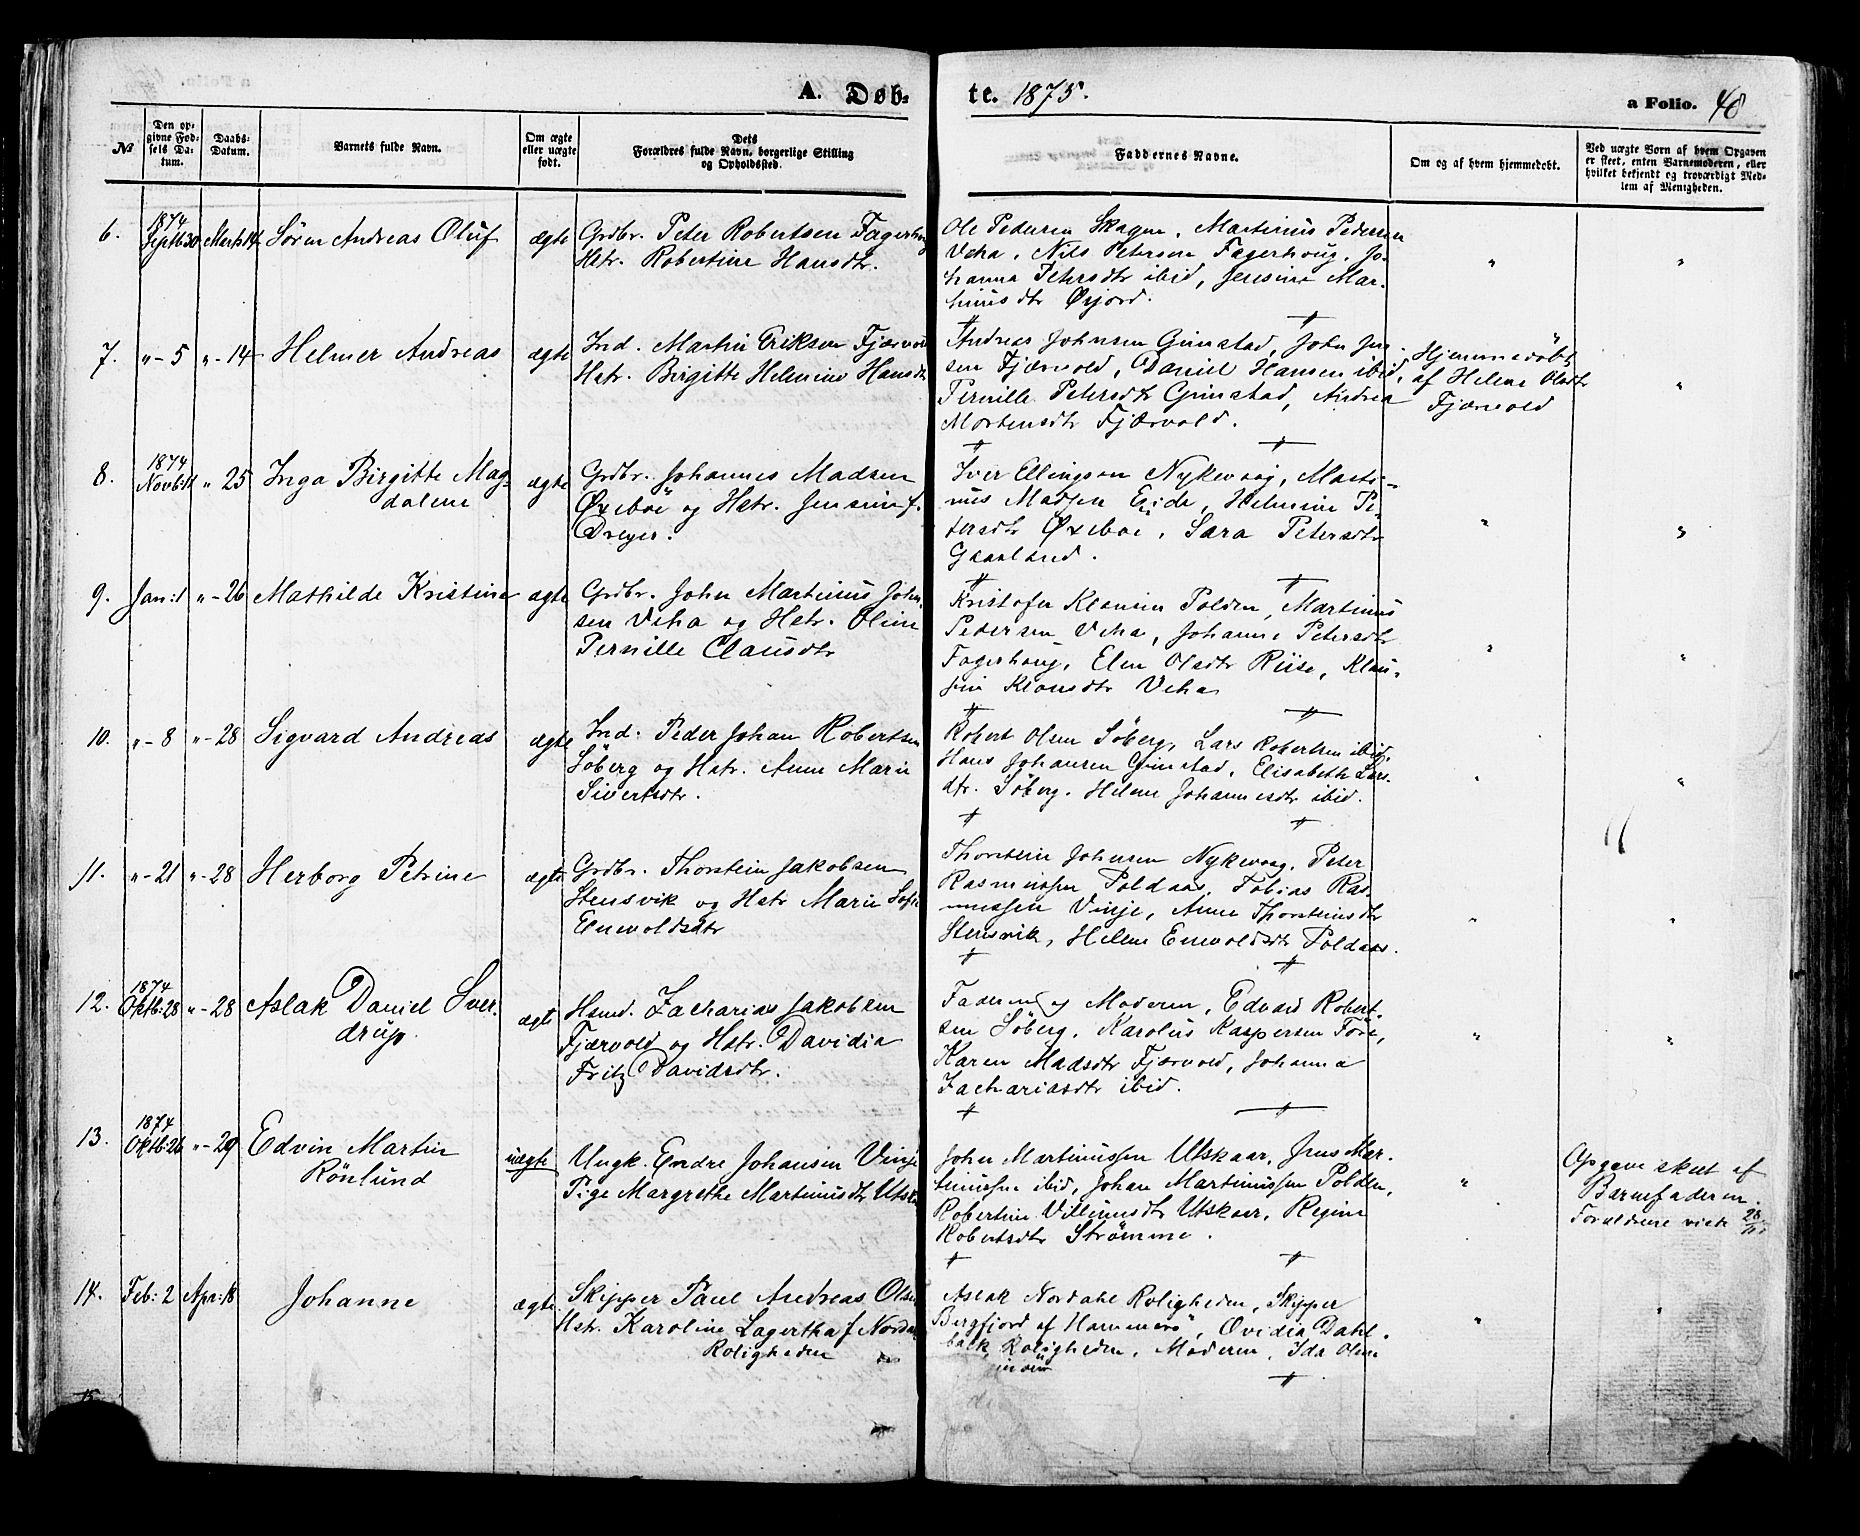 A. Døb- te. 1875. a Folio. 48
№ Den opgivne Fødsels Datum. Daabs-Datum. Barnets fulde Navn. Om ægte eller uægte født. Dets Forældres fulde Navn, borgerlige Stilling og Opholdssted. Faddernes Navne. Om og af hvem hjemmedøbt. Ved uægte Børn af hvem Opgaven er skeet, enten Barnemoderen, eller hvilket bekjendt og troværdigt Medlem af Menigheden.
6. 1874 Septb 20 Marts 14 Søren Andreas Oluf ægte Grdbr. Peter Robertsen Fagerhoug
Hstr. Robertine Hansdtr.
Ole Pedersen Skagen, Martinus Pedersen
Veha, Nils Petersen Fagerhoug, Jo-
hanna Petersdtr ibid, Jensine Mar-
tinusdtr Øxjord.
7. " - 5 " - 14 Helmer Andreas ægte Ind. Martin Eriksen Fjærvold
Hstr. Birgitte Helmine Hansdtr
Andreas Johnsen Grimstad, John Jen-
sen Fjærvold, Daniel Hansen ibid,
Pernille Petersdtr Grimstad, Andrea
Mortensdtr Fjærvold.
Hjemmedöbt
af Helene Olsdtr
Fjærvold
"
8. 1874 Novb: 11 " 25 Inga Birgitte Mag-
dalene
ægte Grdbr. Johannes Madsen
Øxeboe og Hstr. Jensine f.
Dreyer.
Iver Ellingsen Nykvaag, Marti-
nus Madsen Eide, Helmine Pe-
tersdtr Øxeboe, Sara Petersdtr
Gaasland.
" "
9. Jan: 1 " - 26 Mathilde Kristine ægte Grdbr. John Martinus John-
sen Veha og Hstr. Oline
Pernille Clausdtr
Kristofer Klausen Polden, Martinus
Pedersen Veha, Johanne Petersdtr
Fagerhoug, Elen Olsdtr Riise, Klau-
sine Klausdtr Veha
" "
10. " - 8 " - 28 Sigvard Andreas ægte Ind. Peder Johan Robertsen
Söberg og Hstr. Anne Marie
Sivertsdtr.
Robert Olsen Söberg, Lars Robertsen ibid,
Hans Johansen Grimstad, Elisabeth Lars-
dtr. Söberg, Helene Johannesdtr ibid.
" "
11. " - 21 " - 28 Herborg Petrine ægte Grdbr. Thorstein Jakobsen
Stensvik og Hstr Marie Sofie
Enevoldsdtr
Thorstein Johnsen Nykvaag, Peter
Rasmussen Poldaas, Tobias Ras-
mussen Vinje, Anne Thorsteinsdtr
Stensvik, Helene Enevoldsdtr Poldaas.
" "
12. 1874 Oktb: 28 " - 28 Aslak Daniel Sver-
drup.
ægte Hsmd. Zacharias Jakobsen
Fjærvold og Hstr. Davidia
Fritz Davidsdtr.
Faderen og Moderen, Edvard Robert-
sen Söberg, Karolus Kaspersen Före,
Karen Madsdtr Fjærvold, Johanna
Zachariasdtr ibid.
" "
13. 1874 Oktb: 26 " - 29 Edvin Martin
Rönlund
uægte Ungk. Endre Johansen Vinje
Pige Margrethe Martinusdtr Utskaar
John Martinussen Utskaar, Jens Mar-
tinussen ibid, Johan Martinussen Polden,
Robertine Villumsdtr Utskaar, Regine
Robertsdtr Strömme.
"
Opgave skeet af
Barnefaderen.
Forældrene viede
14. Feb: 2 Apr: 18 Johanne ægte Skipper Paul Andreas Olsen
Hstr. Karoline Lagertha f Nordahl
Roligheden
Aslak Nordahl Roligheden, Skipper
Bergfjord af Hammerö, Ovidia Dahl-
bäck, Roligheden, Moderen, Ida Olsen
" "
15